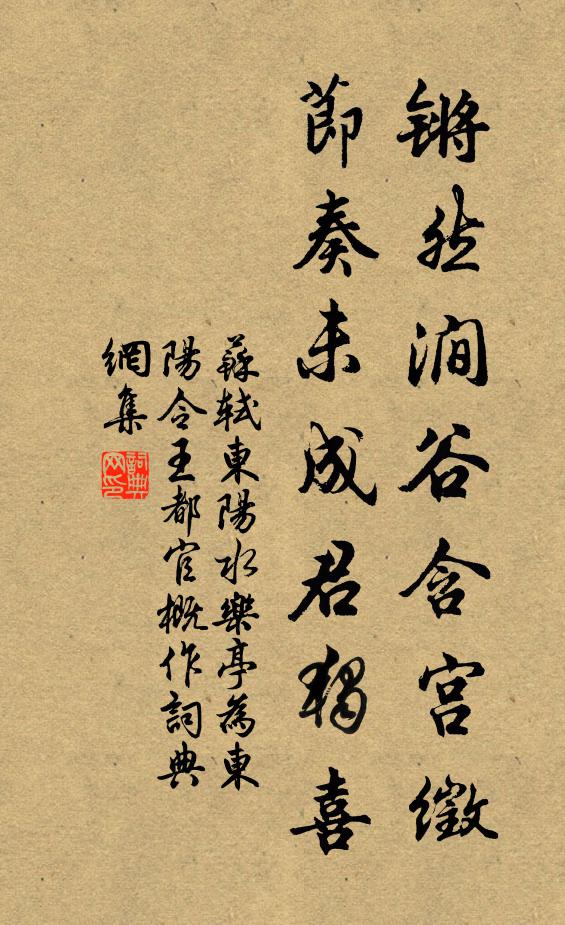 锵然澗谷含宮徵
節奏未成君獨喜
蘇軾東陽水樂亭為東
陽令王都官概作詞典
網集
詞典網印